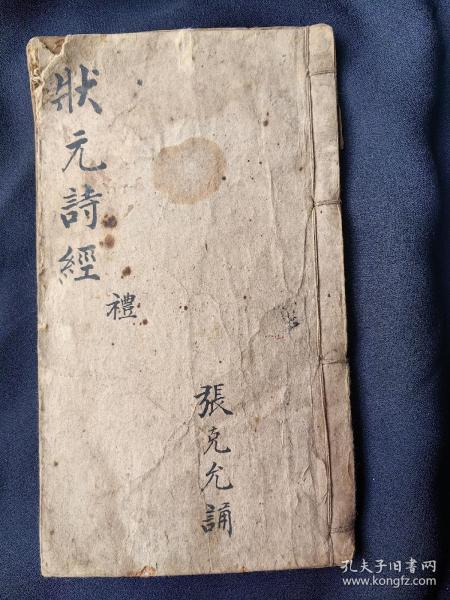 狀元詩經
禮
張克允誦
孔夫子旧书网
www.kongfz.com